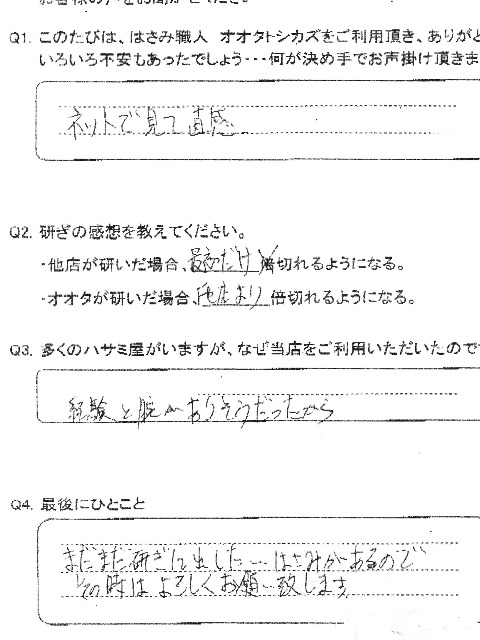 Q1. このたびは、はさみ職人 オオタトシカズをご利用頂き、ありがと
いろいろ不安もあったでしょう・・・何が決め手でお声掛け頂きま
ネットで見て直感。
Q2. 研ぎの感想を教えてください。
・他店が研いだ場合、最初だけ 倍切れるようになる。
・オオタが研いだ場合、他店より 倍切れるようになる。
Q3. 多くのハサミ屋がいますが、なぜ当店をご利用いただいたので
経験と腕がありそうだったから
Q4. 最後にひとこと
まだまだ研ぎに出したい はさみがあるので
その時はよろしくお願い致します